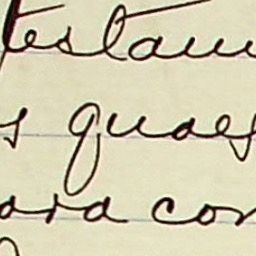 testam
s quaes
ara con